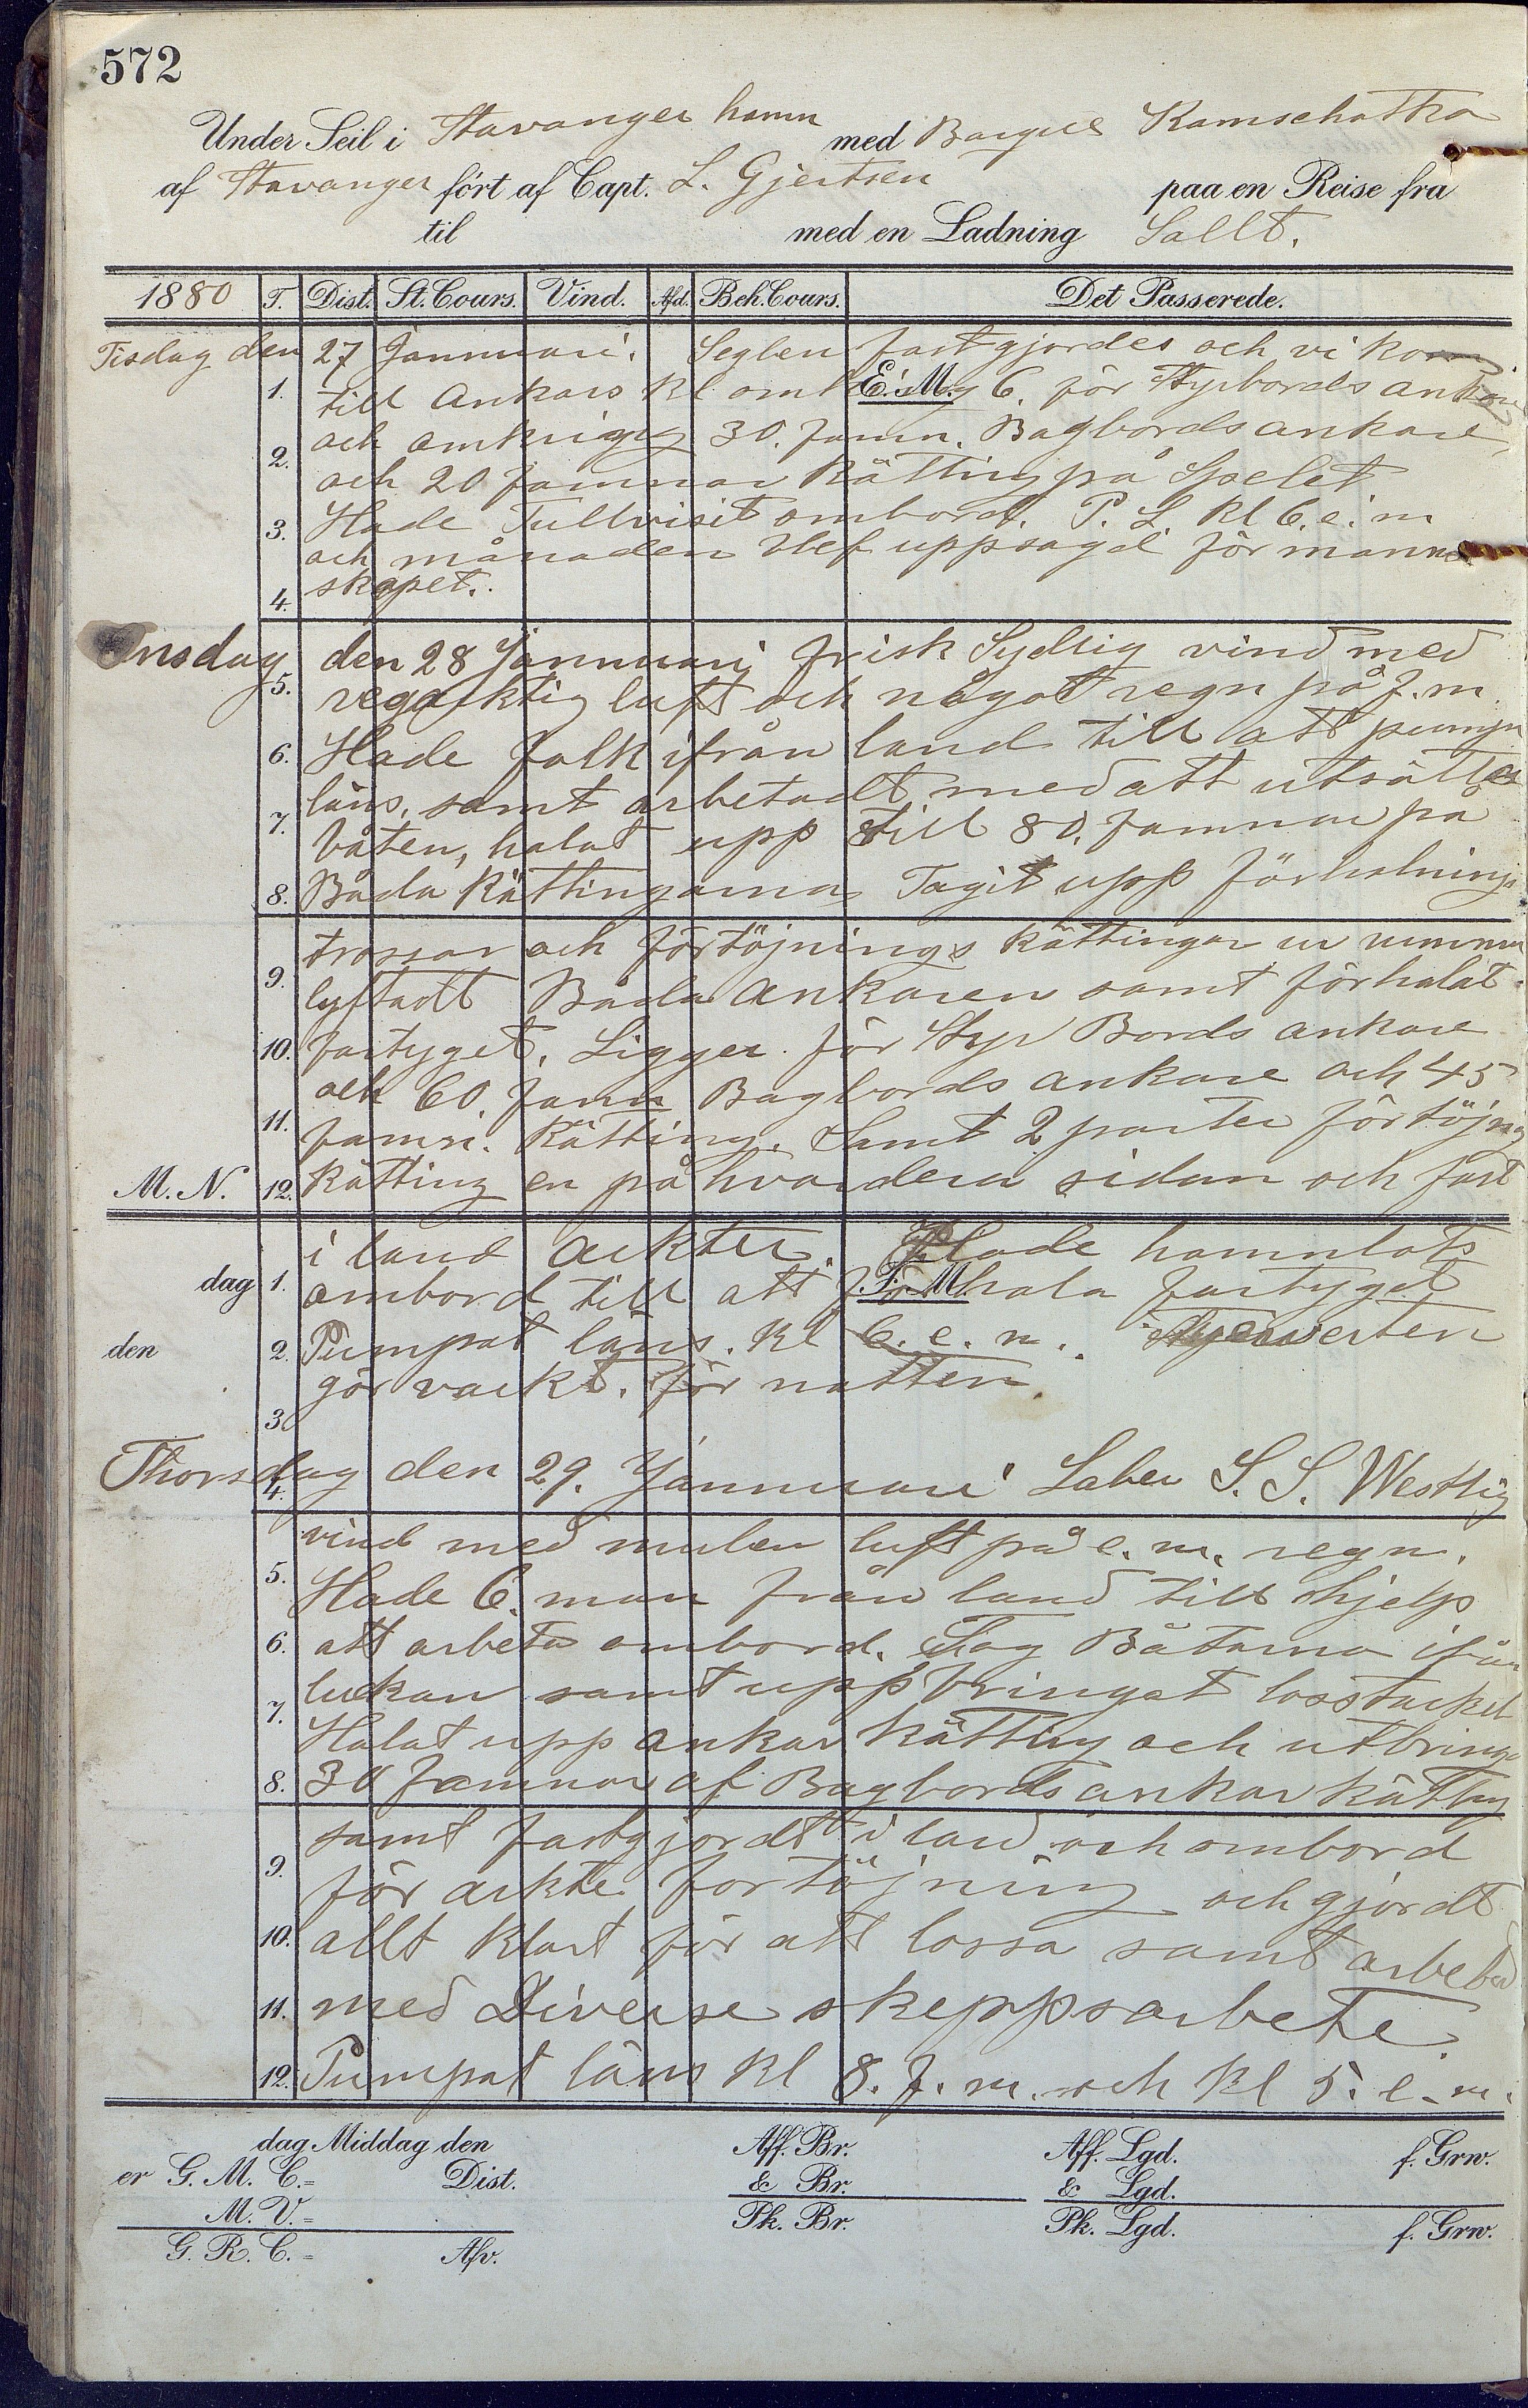 572
Under Seil i Stavanger hamn med Barque Kamschatka
af Stavanger fört af Capt. L. Gjertsen paa en Reise fra
til med en Ladning Sallt.
1880 T. Dist. St. Cours. Vind. Afd. Beh. Cours. Det Passerede.
Tisdag den 27 Januari. Seglen fastgjordes och vi kom
1. till Ankars Kl omkring 6. för Styrbords ankare
E. M.
2. och omkrigng 30. famn. Bagbords ankare
och 20 famnar Kätting på Spelet
3. Hade Tullvisit ombord. P. L. Kl 6. e. m
och månaden blef uppsagd för mann
4. skapet.
Onsdag 5. den 28 Januari frisk Sydlig vind med
regnaktig luft och något regn på f. m.
6. Hade folk ifrån land till att pumpa
läns, samt arbetadt med att utsätta
7. båten, halat upp till 80. famnar på
8. Båda Kättingarna Tagit upp förhalnings
trossar och förtöjnings Kättingar ur rummen
9. lyftadt Båda ankaren samt förhalat
10. fartyget. Ligger för Styr Bords ankare
och 60. famn Bagbords ankare och 45
11. famn. Kätting. Samt 2 parter förtöjng
M. N. 12. Kätting en på hvardera sidan och fast
i land ackter. Hade hamnlots
dag 1. ombord till att förhala fartyget
F. M.
den 2. Pumpat läns. Kl 6. e. m.
gör vackt. för natten.
3.
Thorsdag den 29. Januari Laber S. S. Westlig
4.
vind med mulen luft på e. m. regn.
5. Hade 6. man från land till hjelp
6. att arbeta ombord. Tog Båtarna ifrån
luckan samt uppbringat losstackel
7. Halat upp ankar Kätting och utbringa
8. 30 famnar af Bagbords ankar Kätting
samt fastgjordt i land och ombord
9. för ackter förtöjning och gjordt
10. allt klart för att lossa samt arbetad
11. med Diverse skeppsarbete.
12. Pumpat läns Kl 8. f. m. och Kl 5. e. m.
dag Middag den Aff. Br. Aff. Lgd. f. Grw.
er G. M. C. = Dist. & Br. & Lgd.
M. V. = Pk. Br. Pk. Lgd. f. Grw.
G. R. C. = Afv.